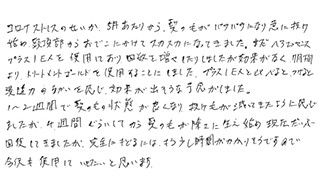 コロナストレスのせいか、5月あたりから、髪の毛がパサパサになり急に抜け
始め 頭頂部からおでこにかけてスカスカになってきました。まだヘアエッセンス
プラス1EXを使用しており回数を増やしたりしましたが効果がなく、月初旬
より、トリートメントゴールドを使用することにしました。プラス1EXと比べると、少なくと
浸透力のちがいを感じ、効果が出そうな予感がしました。
1〜2週間で髪の毛の状態が良くなり抜け毛が減ってきたように感じ
ましたが、4週間ぐらいしてから髪の毛が除々に生え始め現在だいぶ
回復してきましたが、完全にもどるには、もう少し時間がかかりそうですので
今後も使用していきたいと思います。